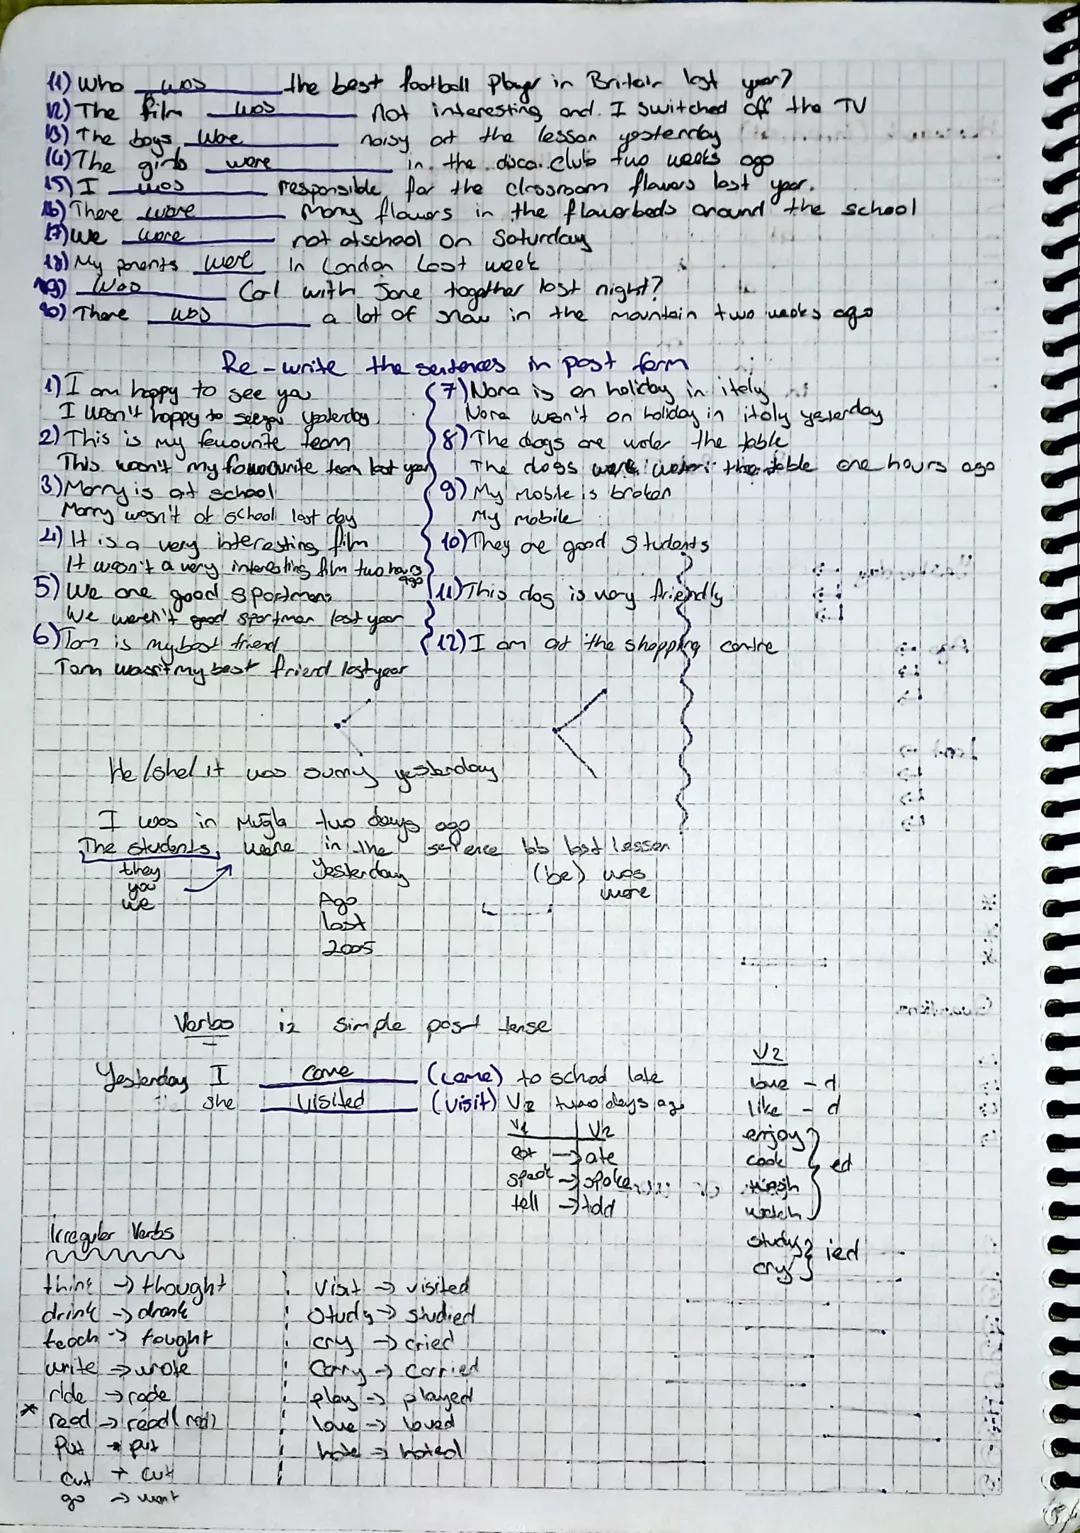 11) Who was the best football player in Britain last year?
12) The film was not interesting and I switched off the TV
13) The boys were noisy at the lesson yesterday
14) The girls were in the disco club two weeks ago
15) I was responsible for the classroom flowers last year.
16) There were many flowers in the flowerbeds around the school
17) We were not at school on Saturday
18) My parents were in London last week
19) Was Carl with Jane together last night?
20) There was a lot of snow in the mountain two weeks ago
Re-write the sentences in past form
1) I am happy to see you
I wasn't happy to see you yesterday.
2) This is my favourite team
This wasn't my favourite team last year
3) Marry is at school
Marry wasn't at school last day
4) It is a very interesting film
It wasn't a very interesting film two hours ago
5) We are good sportmans
We weren't good sportman last year
6) Tom is my best friend
Tom wasn't my best friend last year
7) Nora is on holiday in itely
Nora wasn't on holiday in italy yesterday
8) The dogs are under the table
The dogs were the table one hours ago
9) My mobile is broken
My mobile
10) They are good students
11) This dog is very friendly
12) I am at the shopping centre
He/she/it was sunny yesterday
I was in Muğla two days ago
The students were in the last lesson
they
you
we
Yesterday
Ago
last
2005
(be) was
were
Verbs iz simple past tense
Yesterday I came (come) to school late
she visited (visit) two days ago
V1 V2
eat → ate
speak → spoke
tell → told
V2
love - d
like - d
enjoy
cook
wash
watch
ed
study
cry
ied
Irregular Verbs
think → thought
drink → drank
teach → tought
write → wrote
ride → rode
* read → read (red)
Put → put
Cut → cut
go → went
Visit → visited
Study → studied
cry → cried
Carry → carried
play → played
love → loved
hate → hated